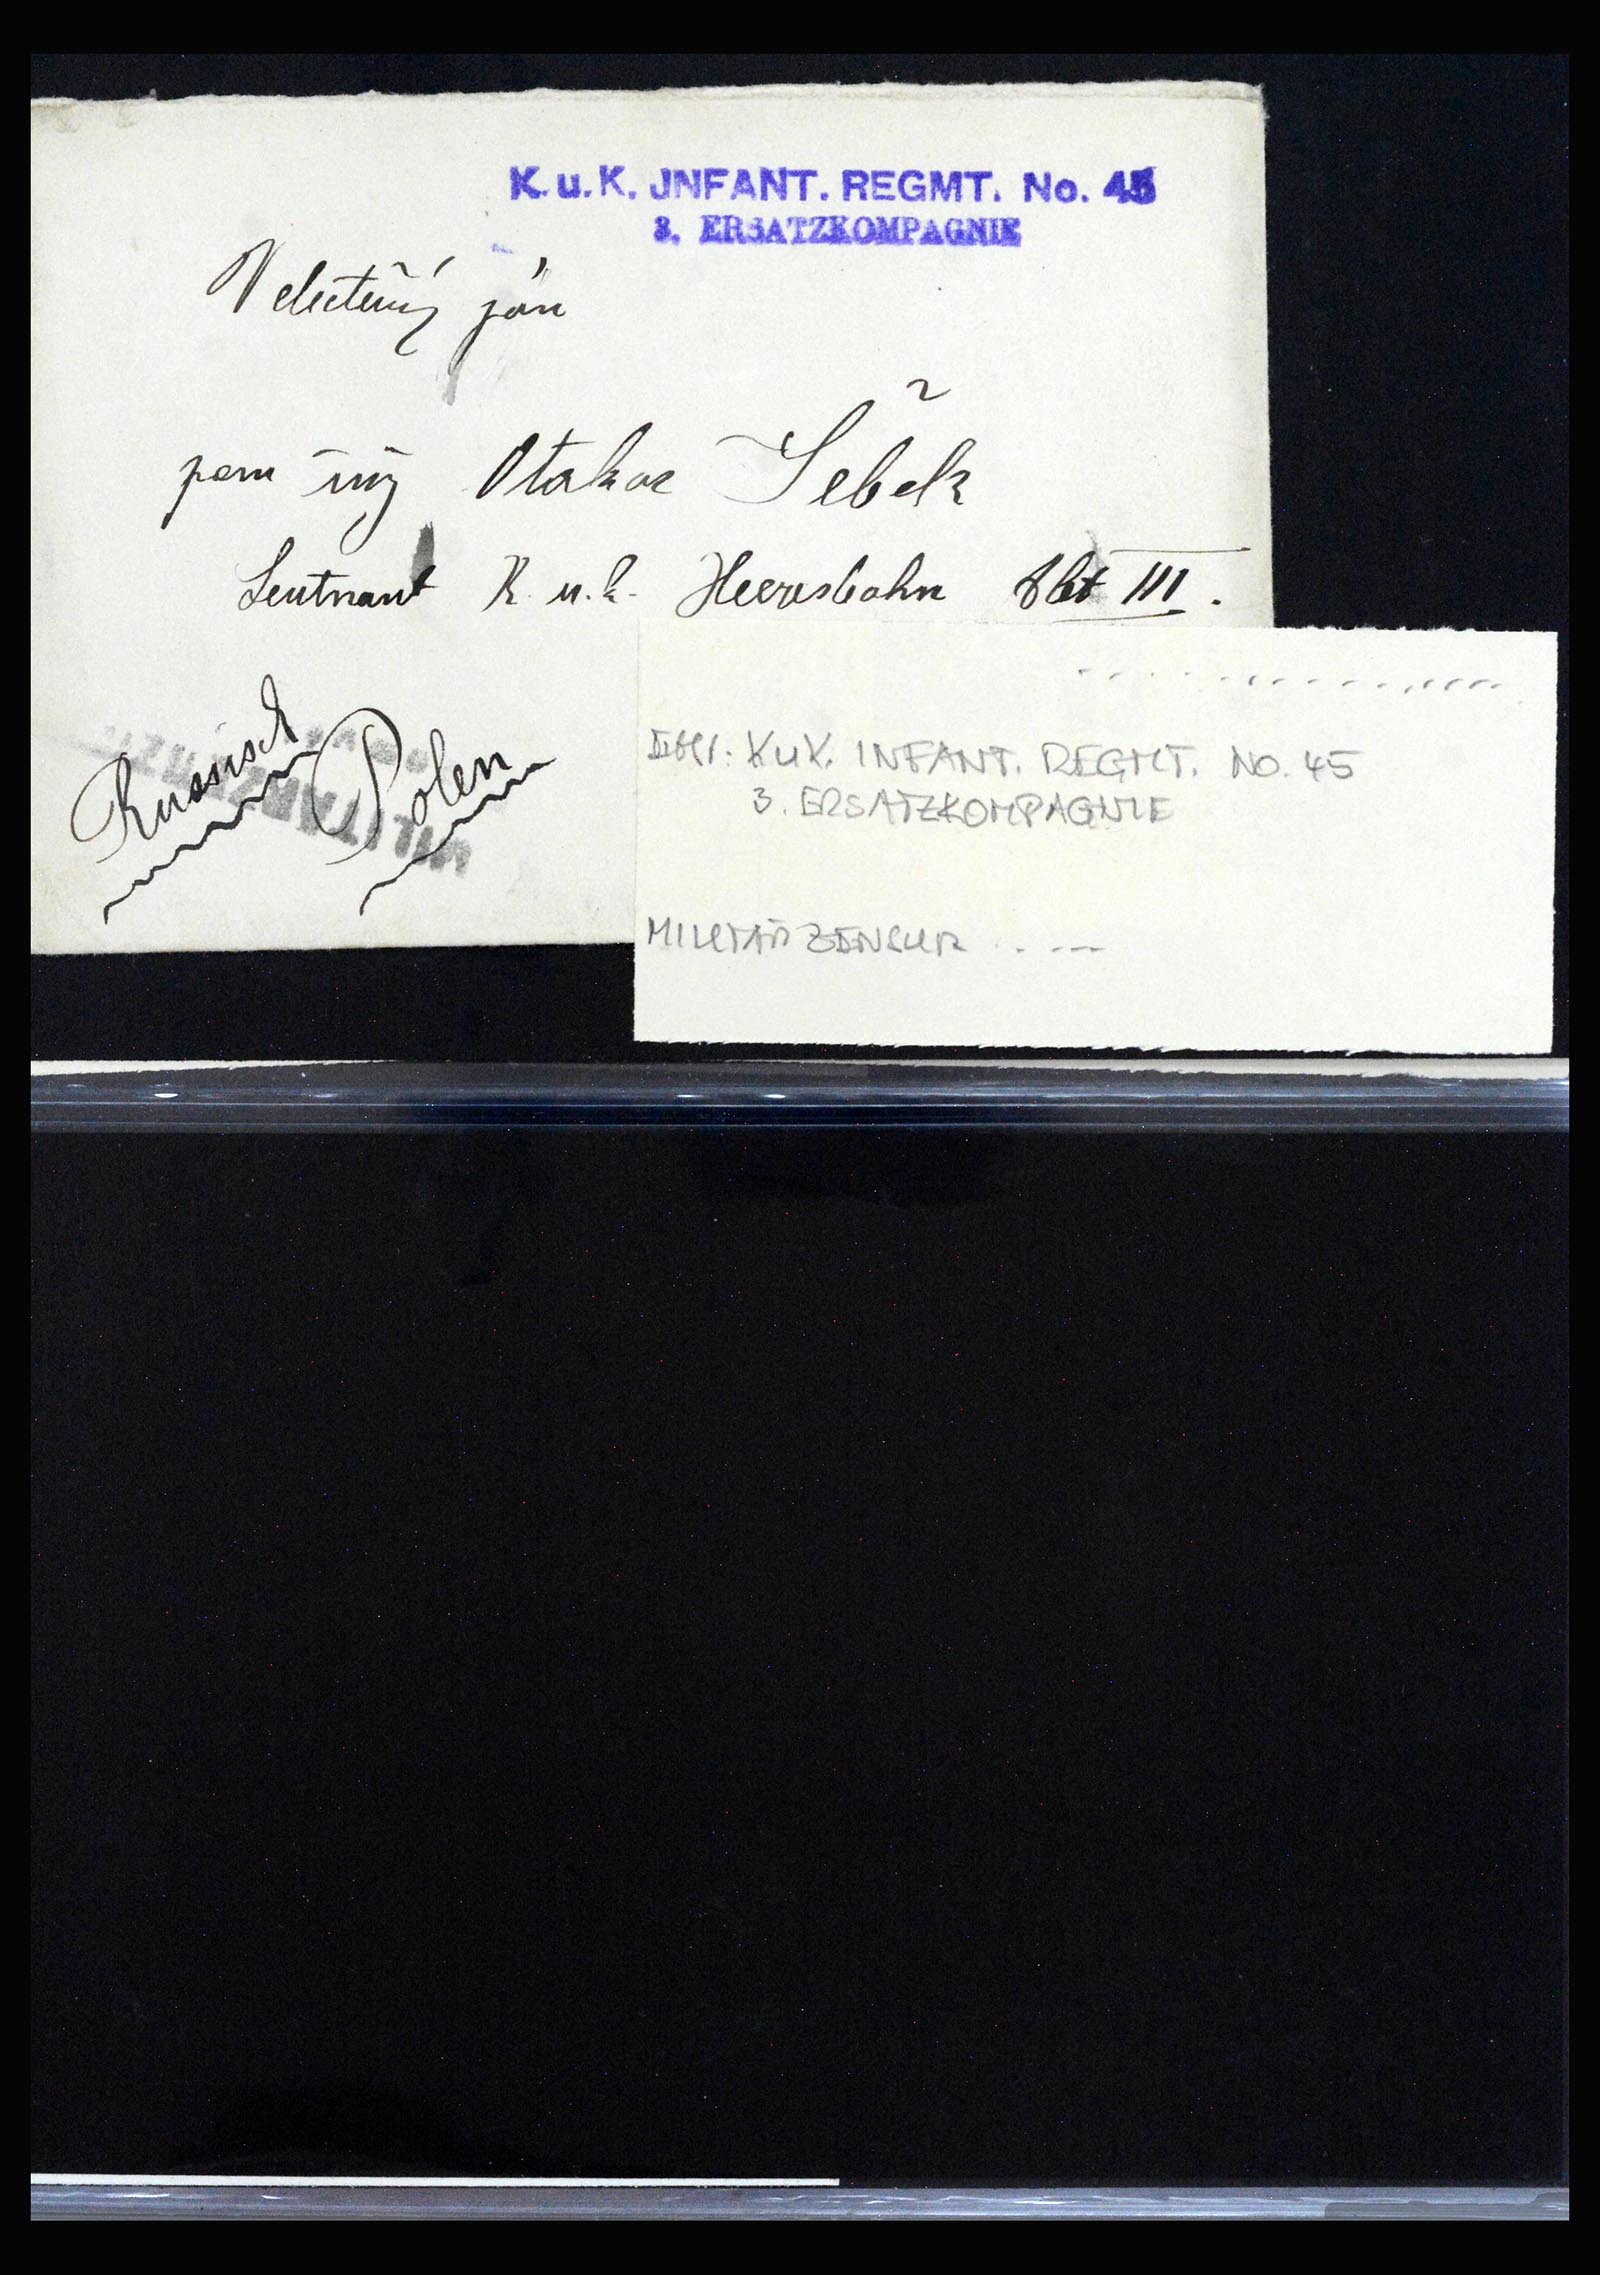 K.u.K. JNFANT. REGMT. No. 45
3. ERSATZKOMPAGNIE
Velectěný pán
pan inž Otakar Šebek
Leutnant K. u. k. Heeresbahn Abt III.
Russisch Polen
K.u.K. INFANT. REGMT. NO. 45
3. ERSATZKOMPAGNIE
MILITÄRZENSUR